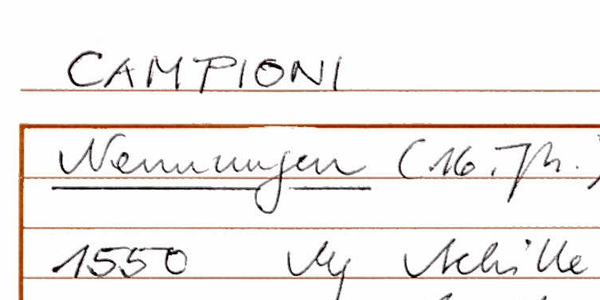 CAMPIONI
Nennungen (16. Jh.)
1550 Achille